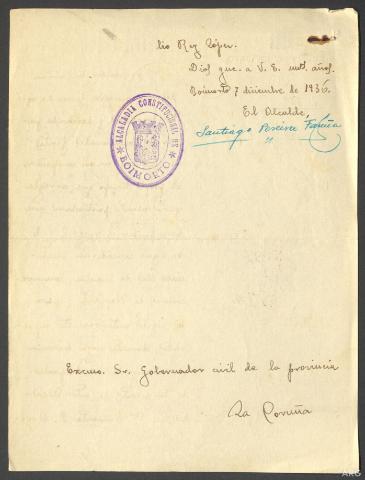 lio Rey López.
Dios gue. a V. E. mts. años.
Boimorto 7 diciembre de 1936.
El Alcalde,
Santiago Pereira Fariña
ALCALDIA CONSTITUCIONAL DE
BOIMORTO
Excmo. Sr. Gobernador civil de la provincia
La Coruña
ARG